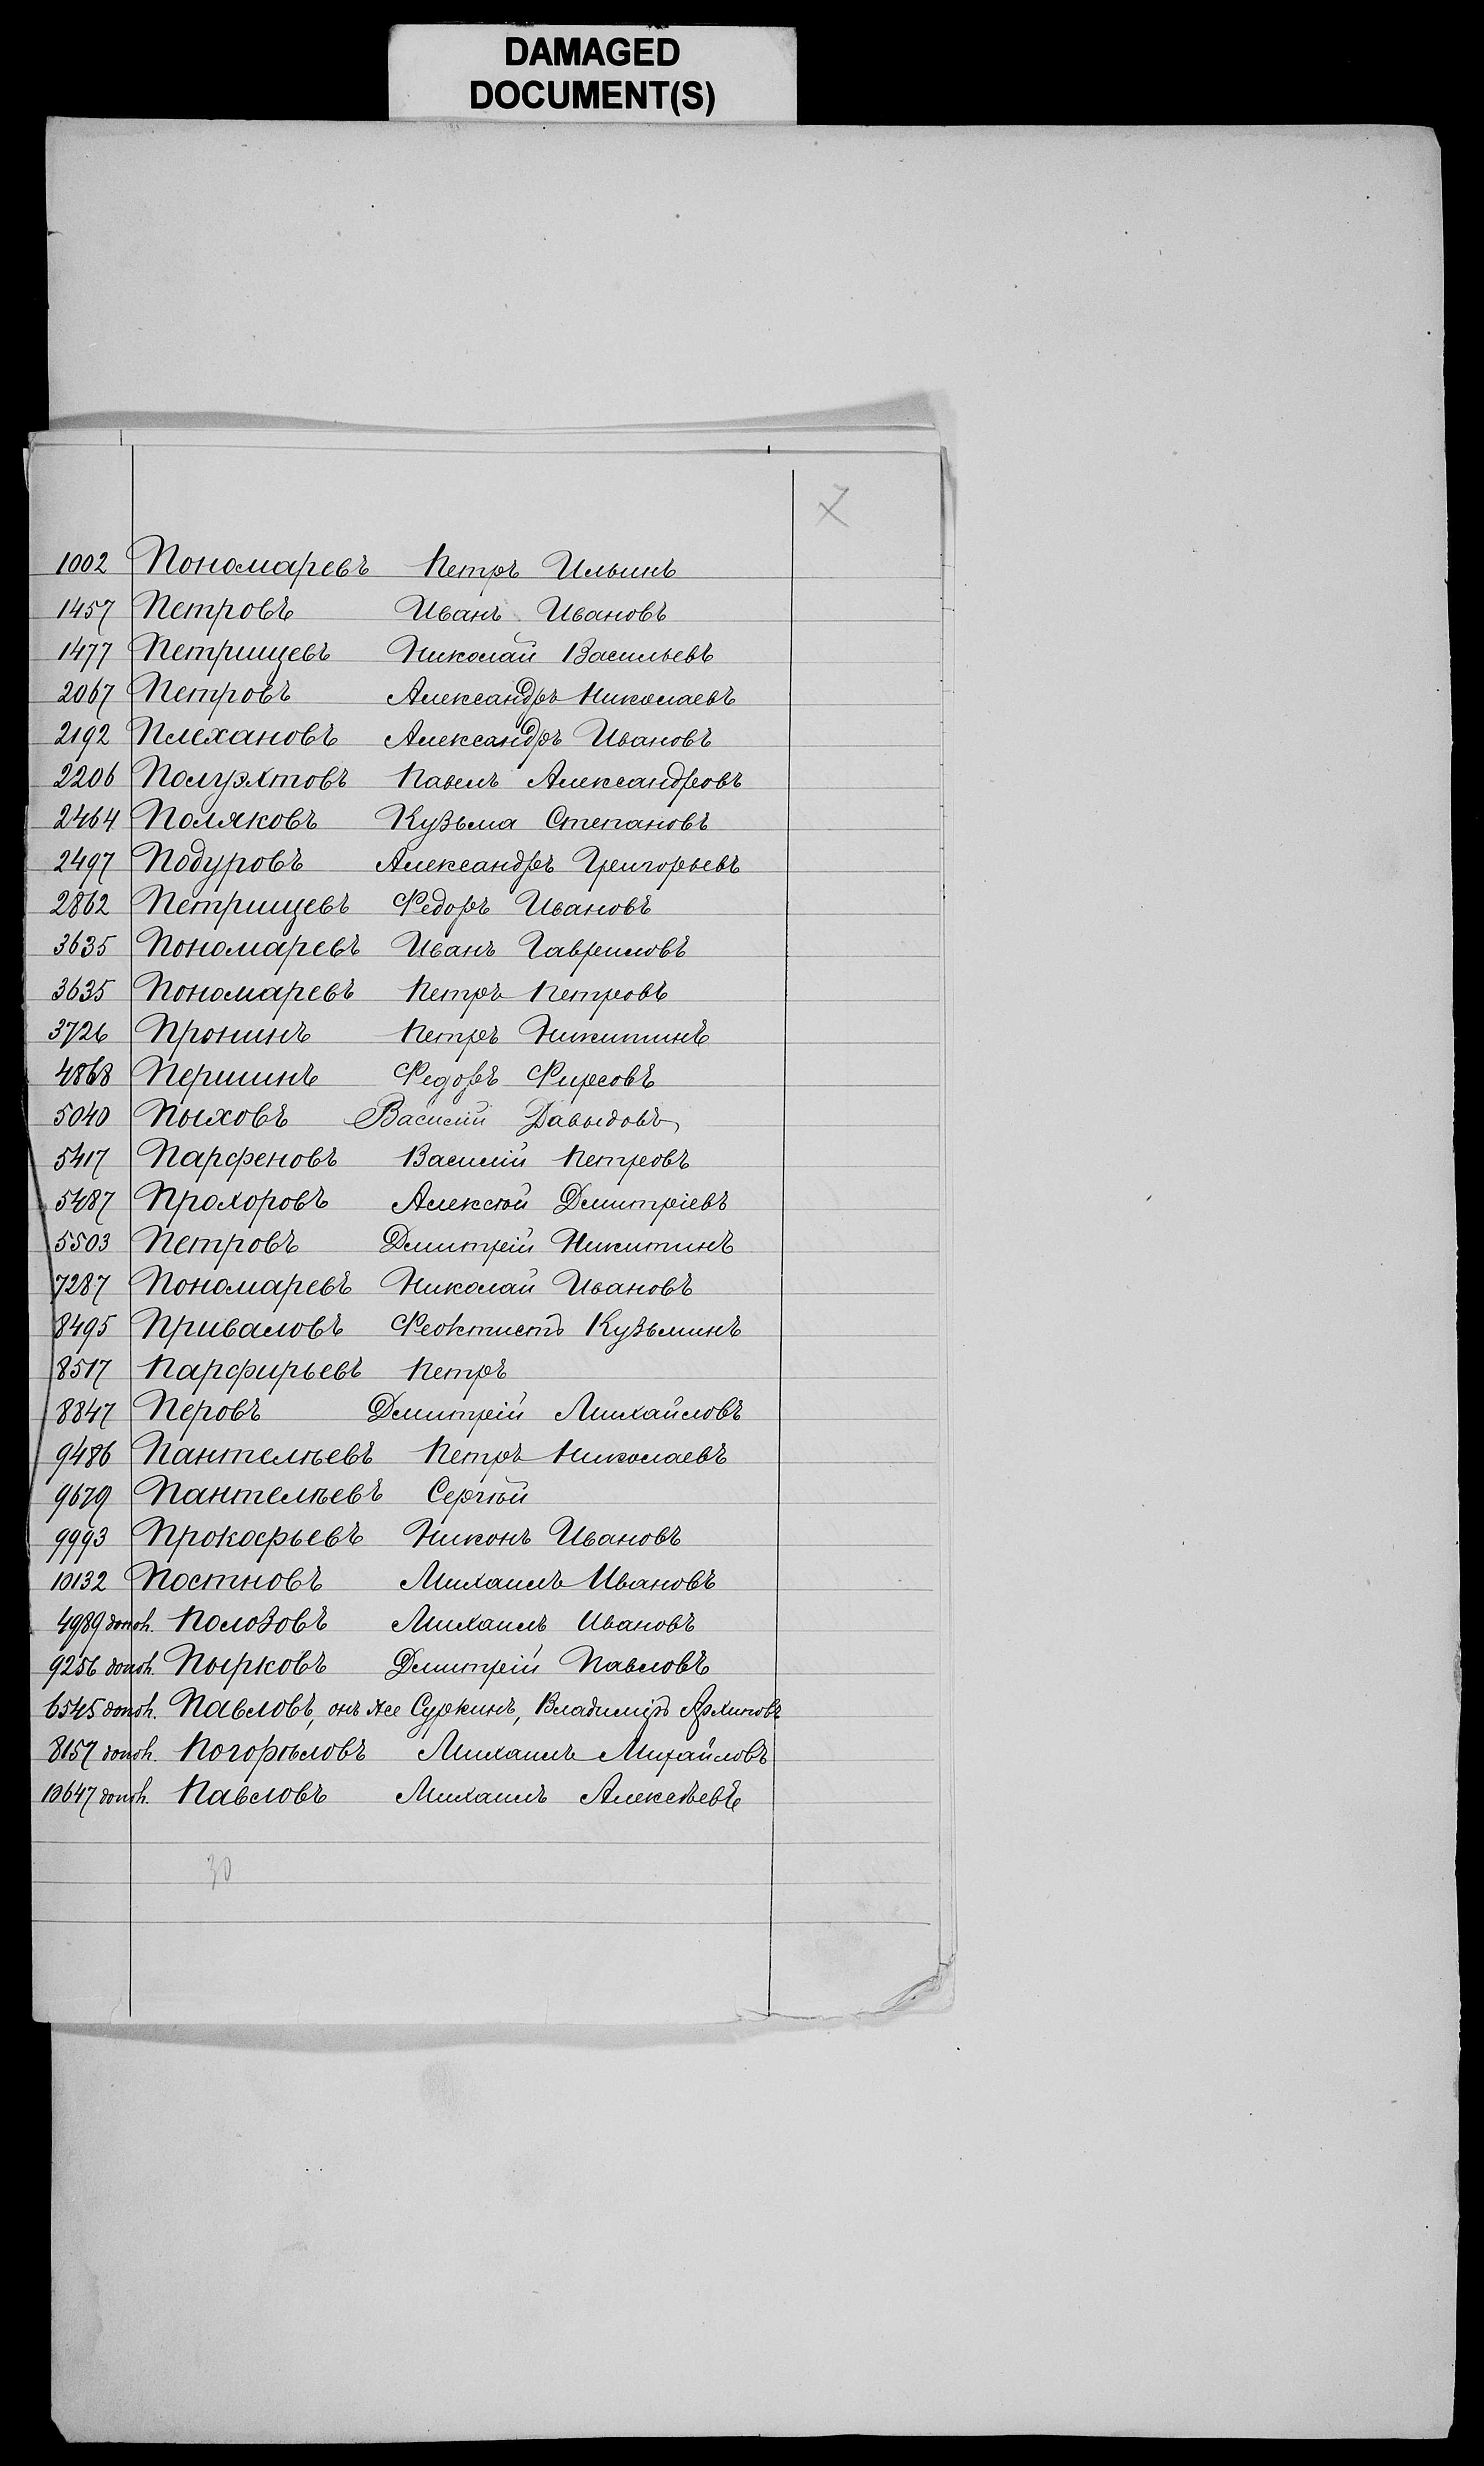 DAMAGED
DOCUMENT(S)
1002 Пономаревъ Петръ Ильинъ
1457 Петровъ Иванъ Ивановъ
1477 Петрищевъ Николай Васильевъ
2067 Петровъ Александръ Николаевъ
2192 Плехановъ Александръ Ивановъ
2206 Полуэхтовъ Павелъ Александровъ
2464 Поляковъ Кузьма Степановъ
2497 Подуровъ Александръ Григорьевъ
2862 Петрищевъ Федоръ Ивановъ
3635 Пономаревъ Иванъ Гавриловъ
3635 Пономаревъ Петръ Петровъ
3726 Пронинъ Петръ Никитинъ
4868 Першинъ Федоръ Фирсовъ
5040 Пыховъ Василій Давыдовъ
5417 Парфеновъ Василій Петровъ
5487 Прохоровъ Алексѣй Дмитріевъ
5503 Петровъ Дмитрій Никитинъ
7287 Пономаревъ Николай Ивановъ
8495 Приваловъ Феоктистъ Кузьминъ
8517 Парфирьевъ Петръ
8847 Перовъ Дмитрій Михайловъ
9486 Пантелѣевъ Петръ Николаевъ
9679 Пантелѣевъ Сергѣй
9993 Прокофьевъ Никонъ Ивановъ
10132 Постновъ Михаилъ Ивановъ
4989 доп. Полозовъ Михаилъ Ивановъ
9256 доп. Пырковъ Дмитрій Павловъ
6545 доп. Павловъ, онъ же Суркинъ, Владиміръ Архиповъ
8157 доп. Погорѣловъ Михаилъ Михайловъ
10647 доп. Павловъ Михаилъ Алексѣевъ
30